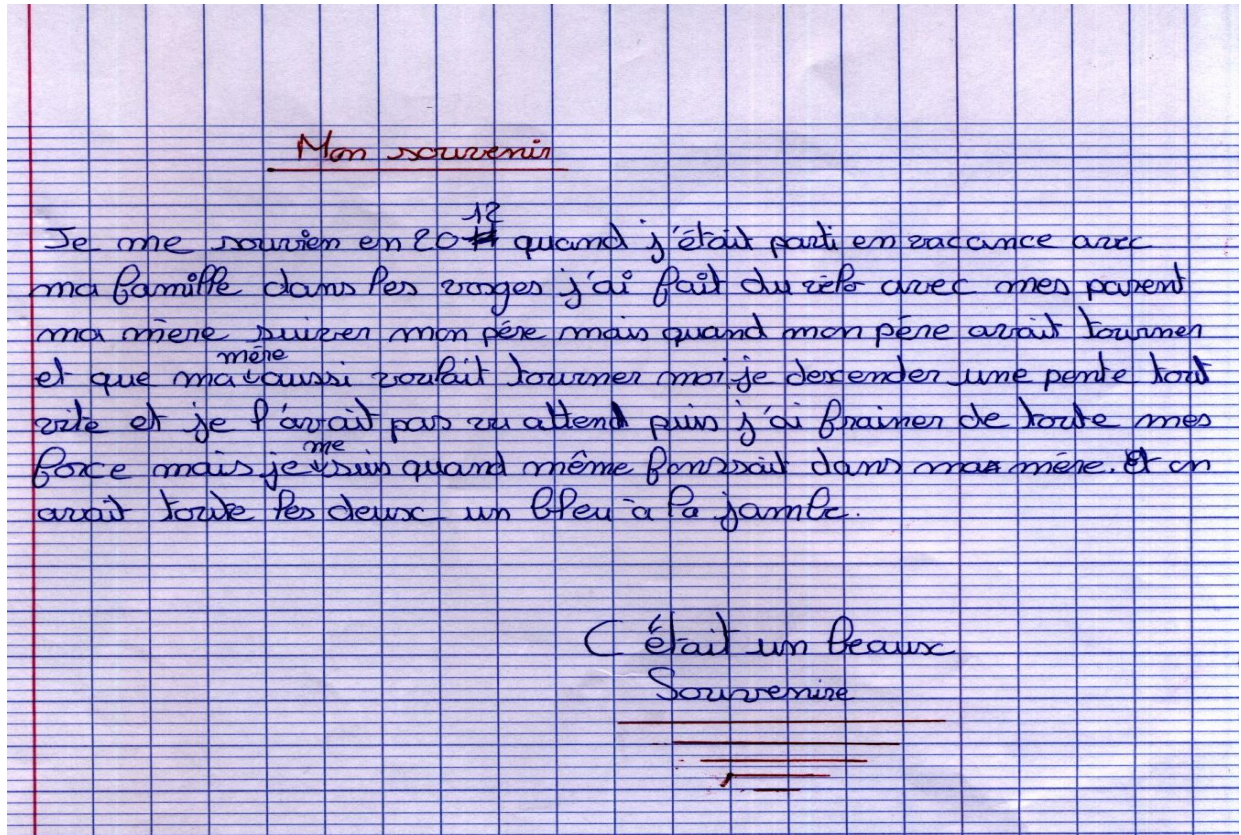 Mon souvenir
Je me souvien en 2012 quand j'était parti en vacance avec
ma famille dans les vosges j'ai fait du vélo avec mes parent
ma mère suiver mon père mais quand mon père avait tourner
et que ma mère aussi voulait tourner moi je descender une pente tout
vite et je l'avait pas vu attend puis j'ai frainer de toute mes
force mais je me suis quand même fonssait dans ma mère. et on
avait toute les deux un bleu à la jambe.
C'était un beaux
Souvenire